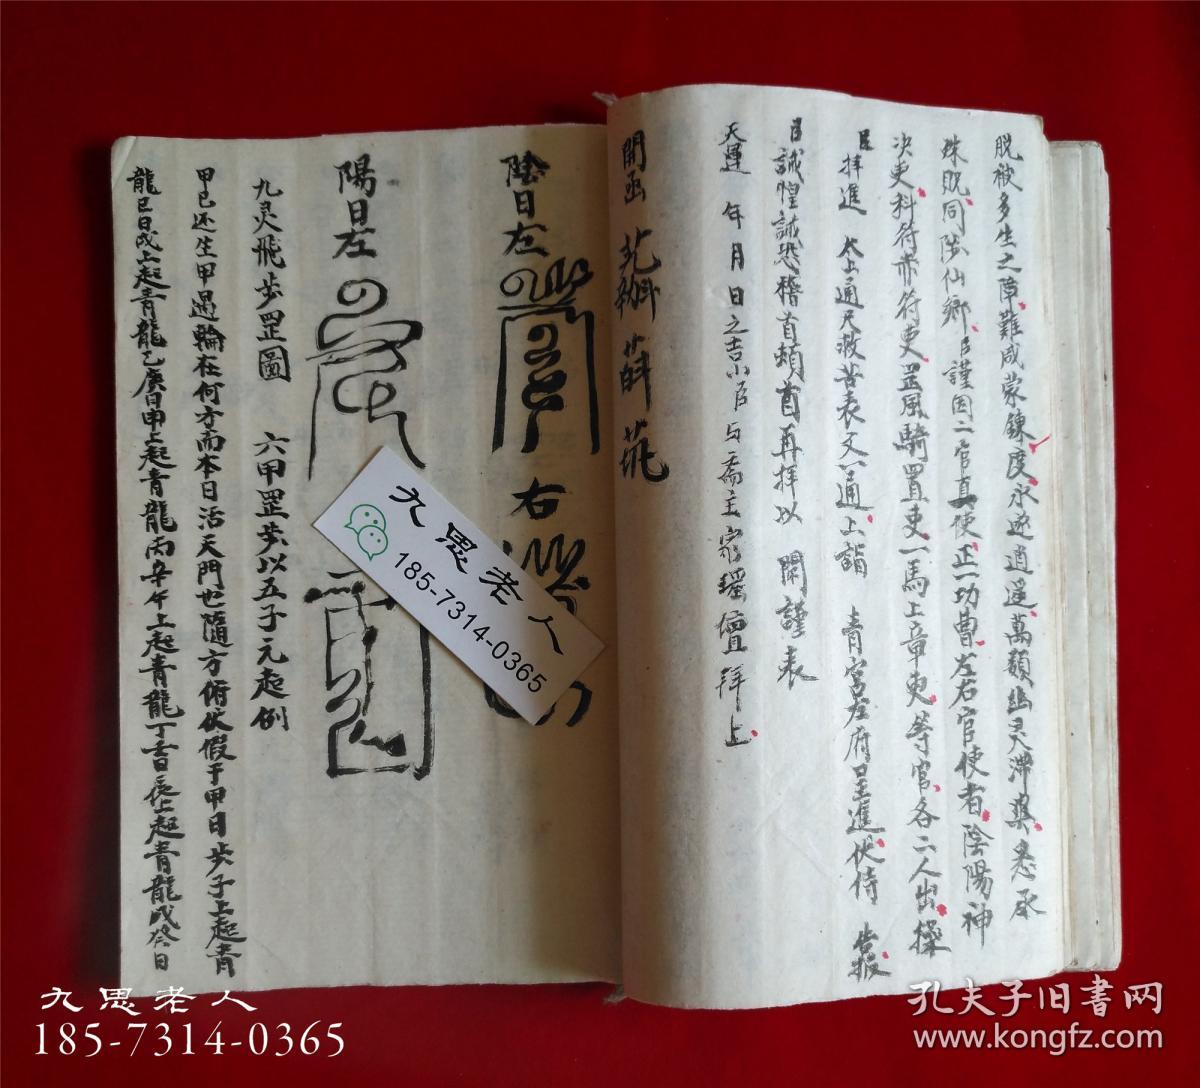 脱被多生之障難咸蒙鍊度永遂逍遥萬類幽灵滞爽悉承
殊既同陟仙鄉臣謹因二官真使正一功曹左右官使者陰陽神
决吏科符吏罡風騎置吏一馬上章吏等官各二人出操
臣拜進 太上通尺救苦表文一通上詣 青宫左府呈進伏侍 告報
臣誠惶誠恐稽首頓首再拜以 聞謹表
天運 年 月 日之吉小臣与斋主 拜上
開函
陰日左
右
陽日左
九灵飛步罡圖 六甲罡步以五子元起例
甲已还生甲遇輪在何方而本日活天門也隨方俯伏假于甲日步子上起青
龍巳日戌上起青龍乙庚日申上起青龍丙辛午上起青龍丁壬日辰上起青龍戊癸日
九思老人
185-7314-0365
九思老人
185-7314-0365
孔夫子旧書网
www.kongfz.com